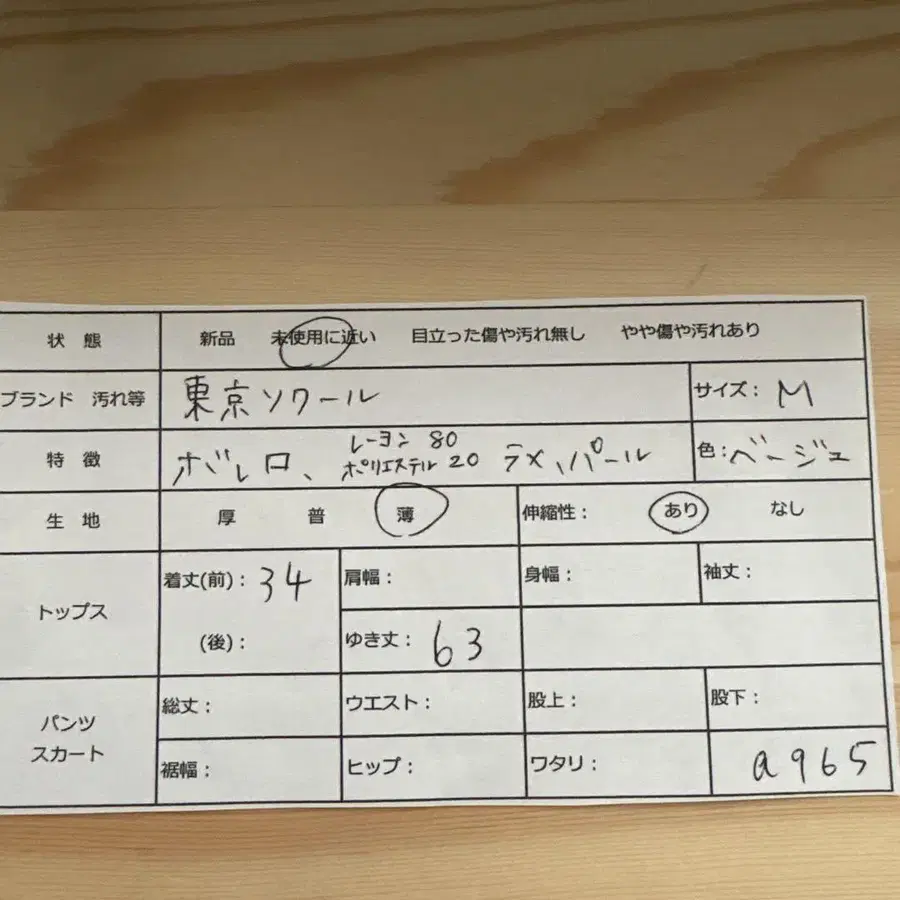 状態 新品 未使用に近い 目立った傷や汚れ無し やや傷や汚れあり
ブランド 汚れ等 東京ソワール サイズ: M
特徴 ボレロ、レーヨン 80 ポリエステル 20、ラメ、パール 色:ベージュ
生地 厚 普 薄 伸縮性: あり なし
トップス 着丈(前): 34 肩幅: 身幅: 袖丈:
(後): ゆき丈: 63
パンツ スカート 総丈: ウエスト: 股上: 股下:
裾幅: ヒップ: ワタリ: a965